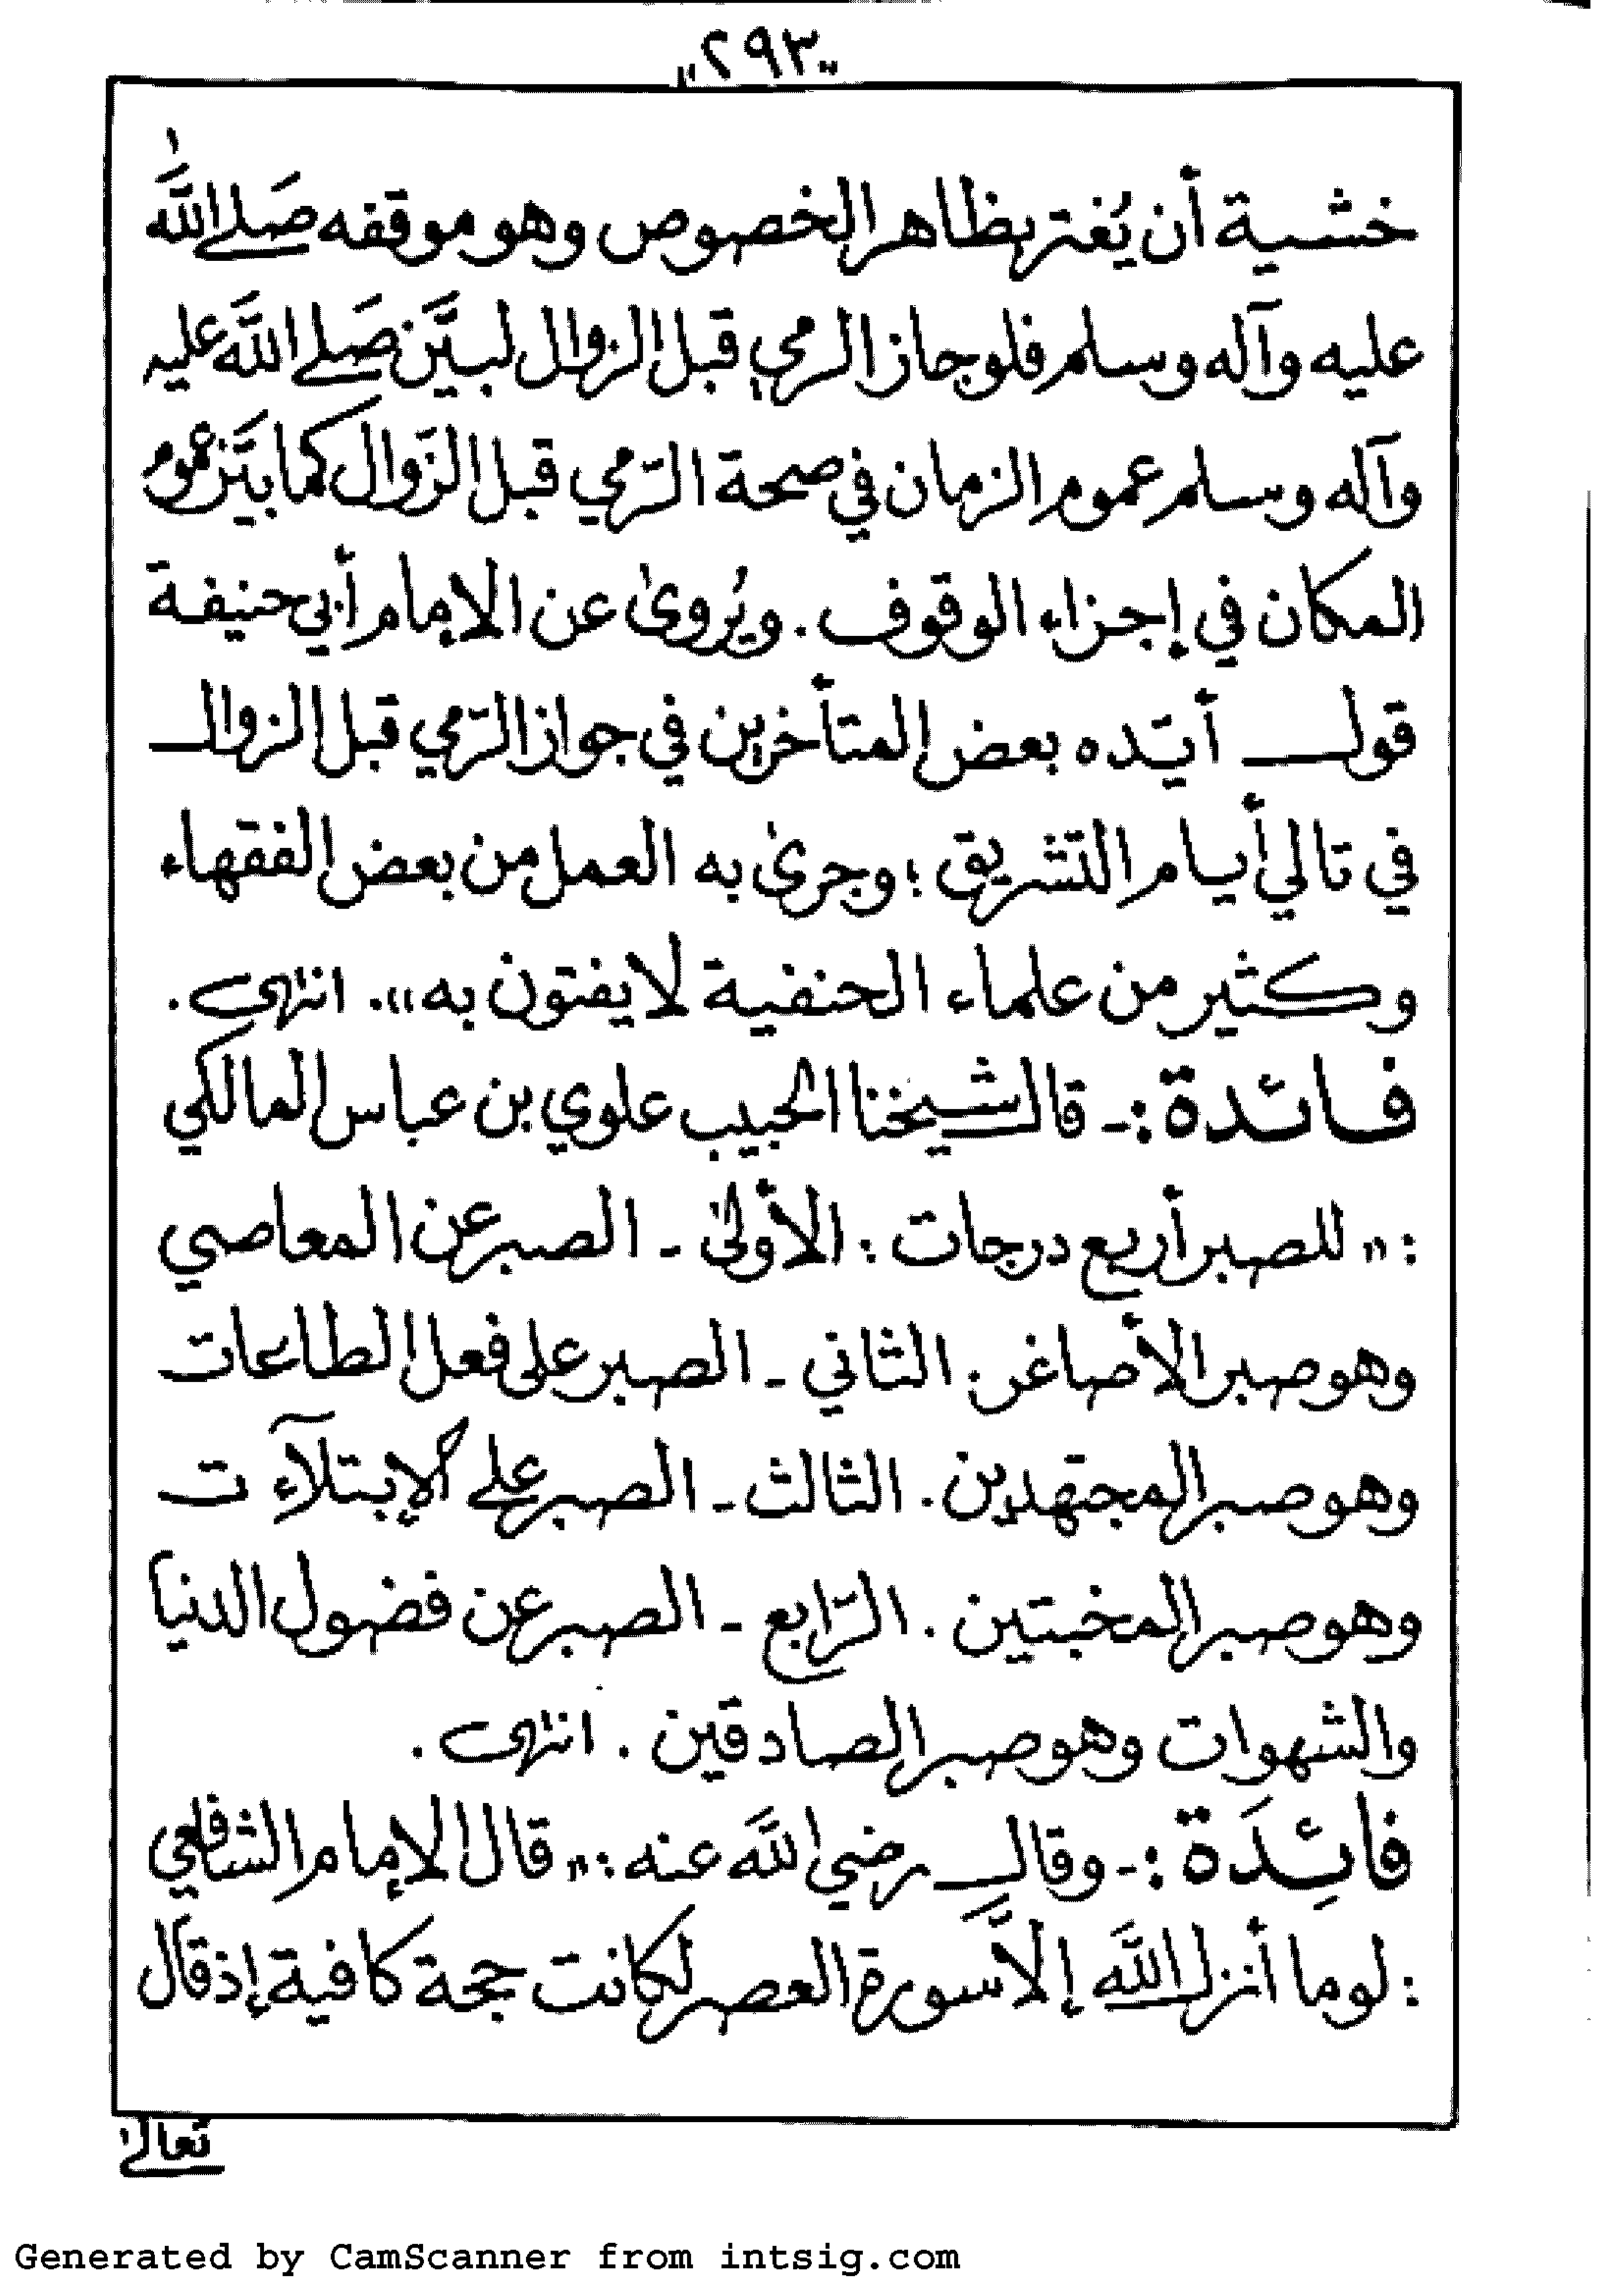 "٢٩٣"
خشية أن يُغتر بظاهر الخصوص وهو موقفه صَلى اللَّه
عليه وآله وسلم فلو جاز الرمي قبل الزوال لبيَّن صَلى اللَّه عليه
وآله وسلم عموم الزمان في صحة الرّمي قبل الزَوال كما بيَّن عموم
المكان في إجزاء الوقوف . ويُروىٰ عن الإمام أبي حنيفة
قول أيّده بعض المتأخرين في جواز الرّمي قبل الزوال
في تالي أيام التشريق ؛ وجرىٰ به العمل من بعض الفقهاء
وكثير من علماء الحنفية لا يفتون به ». انتهى .
فائدة :- قال شيخنا الحبيب علوي بن عباس المالكي
: « للصبر أربع درجات : الأولىٰ - الصبر عن المعاصي
وهو صبر الأصاغر . الثاني - الصبر على فعل الطاعات
وهو صبر المجتهدين . الثالث - الصبر على الإبتلآءت
وهو صبر المخبتين . الرّابع - الصبر عن فضول الدنيا
والشهوات وهو صبر الصادقين . انتهى .
فائِدَة :- وقال رضي اللَّه عنه : « قال الإمام الشافعي
: لو ما أنزل اللَّه إلاَّ سورة العصر لكانت حجة كافية إذ قال
تعالىٰ
Generated by CamScanner from intsig.com